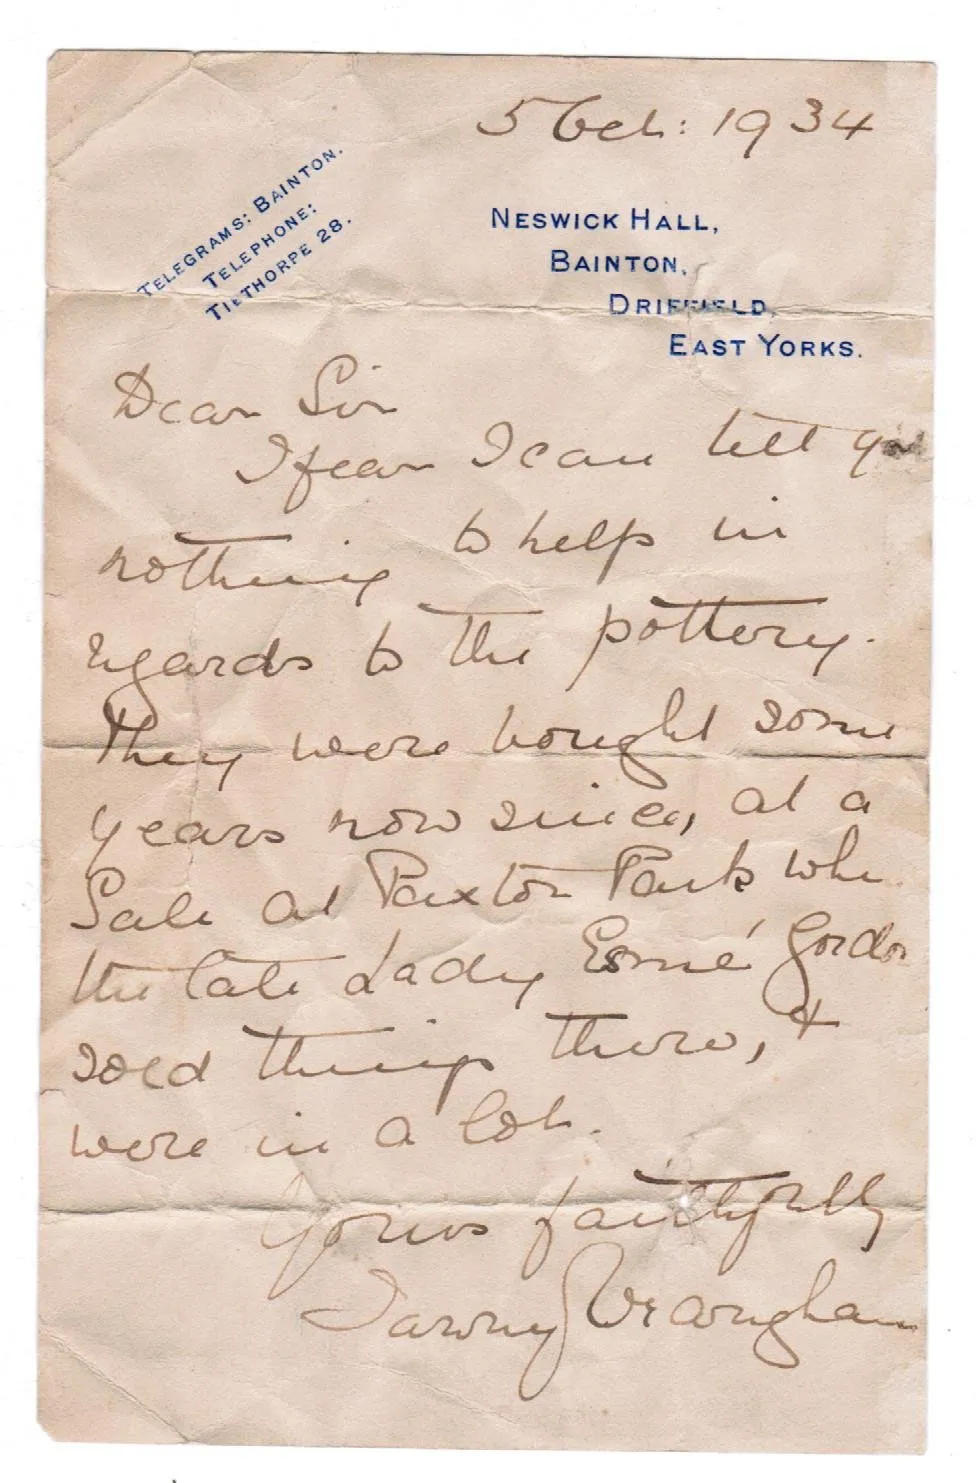 5 Oct: 1934
TELEGRAMS: BAINTON.
TELEPHONE:
TIBTHORPE 28.
NESWICK HALL,
BAINTON,
DRIFFIELD,
EAST YORKS.
Dear Sir
I fear I can tell you
nothing to help in
regards to the pottery.
They were bought some
years now since, at a
Sale at Paxton Park whe
the late Lady Esmé Gordon
sold things there, &
were in a lot.
Yours faithfully
Wrangham